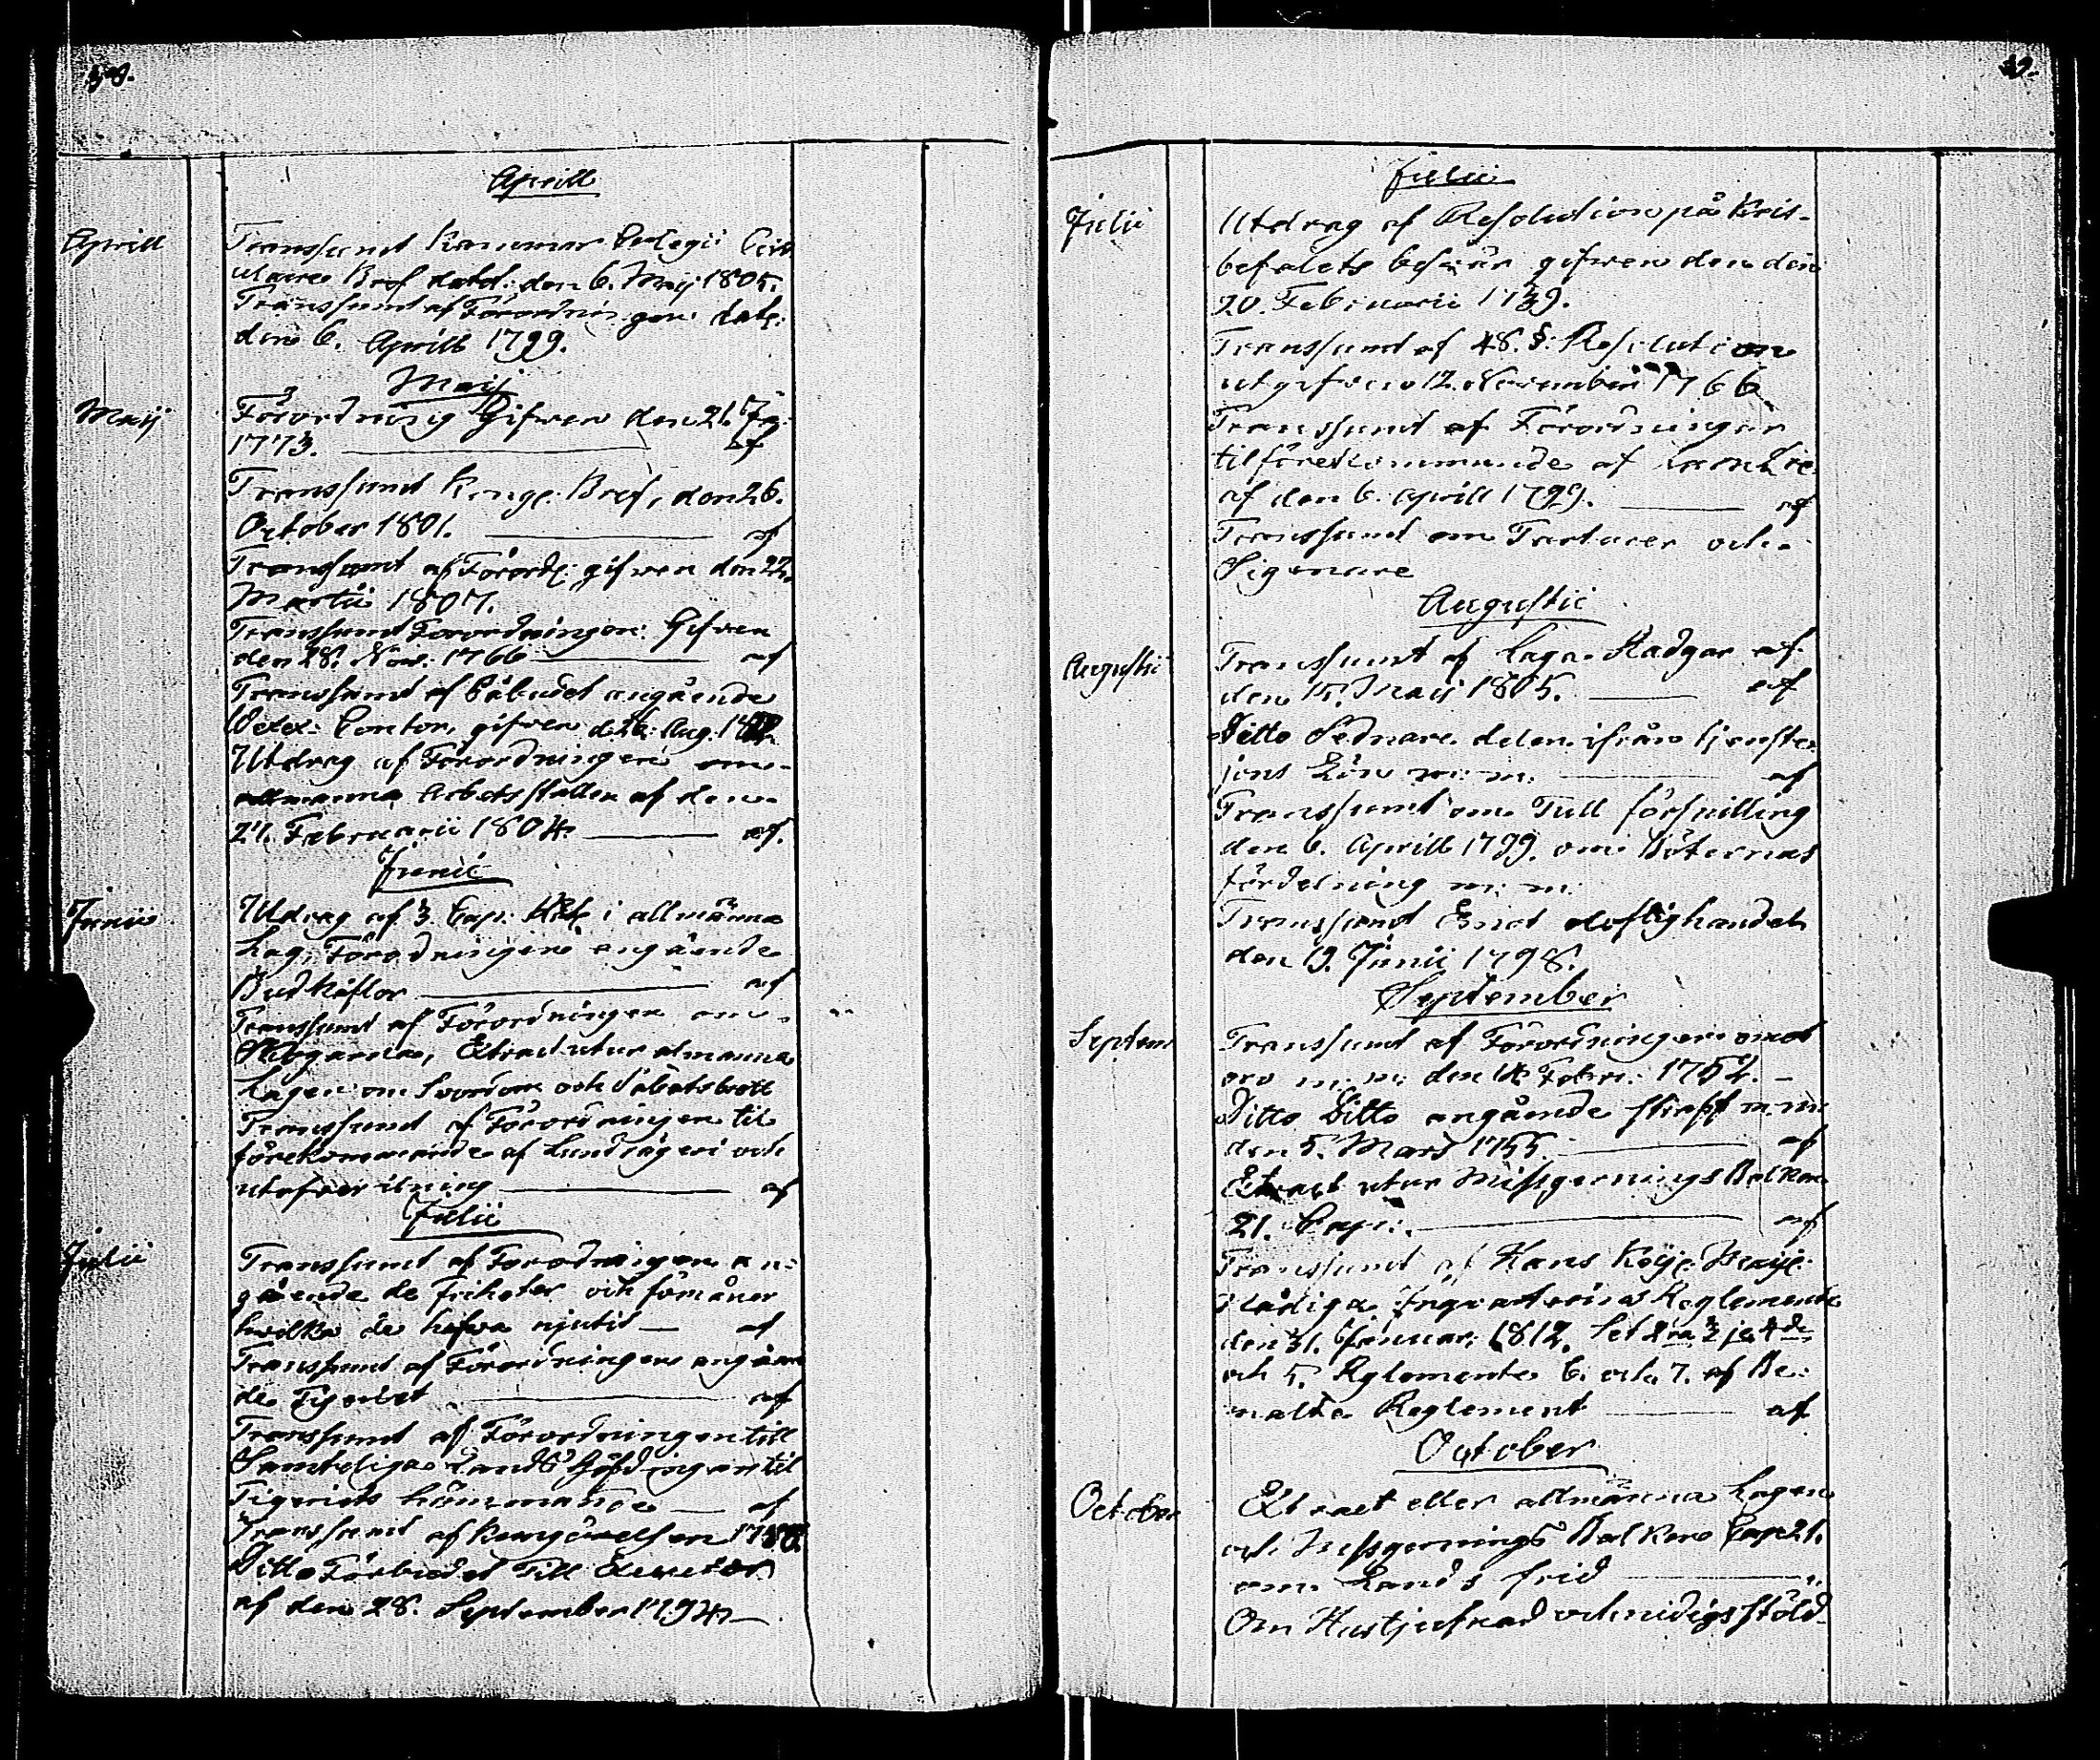 38.
Aprill
Aprill
Transsumt Kammar Colegii Circ
ulaire Bref datd: den 6. Maij 1805.
Transsumt af Förordningen date:
den 6. Aprill 1799.
Maij
Maij
Förordning Gifwen den 21.
1773. af
Transsumt Kongl. Bref, den 26.
October 1801. af
Transsumt af Förord: gifwen den 22.
Martii 1807.
Transsumt Förordningen Gifwen
den 28. Nov: 1766 af
Transsumt af Påbudet angående
Wexel: Contor, gifwen d. 26. Aug.
Utdrag af Förordningen om
allmanna Arbetsställen af den
21. Februarii 1804. af.
Junii
Junii
Utdrag af 3. Cap: i allmänna
Lag, Förordningen angående
Budkaflor af
Transsumt af Förordningen om
Skogarna, Extract utur almanna
Lagen om Svordom och Sabatsbrott
Transsumt af Förordningen til
förekommande af och
af
Julii
Julii
Transsumt af Forordningen an-
gående de friheter och förmåner
hvilka de hafwa njutit af
Transsumt af Förordningen angåen
de Tigeriet af
Transsumt af Förordningen till
Samteliga Lands Höfdingar til
Tigeriets hämmande af
Transsumt af Kungörelsen
Ditto Förbudet Till
af den 28. September 1794.
39.
Julii
Julii
Utdrag af Resolution på Kris-
befalets besvär gifwen den den
20. Februarii 1739.
Transsumt af 48. §: Resolution
utgifwen 12. November 1766.
Transsumt af Förordningar
til förekommande af
af den 6. Aprill 1799. af
Transsumt om Tartarer och
Sigenare
Augustii
Augustii
Transsumt af Lega Stadgar af
den 15. Maij 1805. af
Ditto Sednare delen ifrån tjenste
jons Lön m: m: af
Transsumt om Tull försnilling
den 6. Aprill 1799. om Böternas
fördelning m: m:
Transsumt Emot
den 19. Junii 1798.
September
Septem
Transsumt af Förordningen emot
oro m: m: den Febr: 1752.
Ditto Ditto angående straff m: m:
den 5. Mars 1755. af
Extract utur Missgernings Balken
21. Cap: af
Transsumt af Hans Kongl. Majts
Nådiga Inqvarterings Reglemente
den 31. Januar: 1812. 1st 2ra 3je 4de
och 5. Reglemente 6. och 7. af Be-
malte Reglement af
October
October
Extract eller allmänna Lagen
och Missgernings Balken Cap 21.
om Lands frid
Om Hustjufnad och nidigs stöld